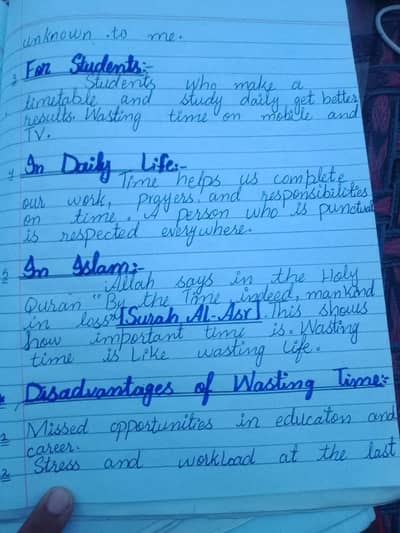 unknown to me.
3 For Students:-
Students who make a
timetable and study daily get better
results. Wasting time on mobile and
TV.
4 In Daily Life:-
Time helps us complete
our work, prayers and responsibilities
on time. A person who is punctual
is respected everywhere.
5 In Islam:-
Allah says in the Holy
Quran "By the Time indeed, mankind
in loss" [Surah Al-Asr]. This shows
how important time is. Wasting
time is Like wasting life.
Disadvantages of Wasting Time:-
1 Missed opportunities in educaton and
career.
2 Stress and workload at the last